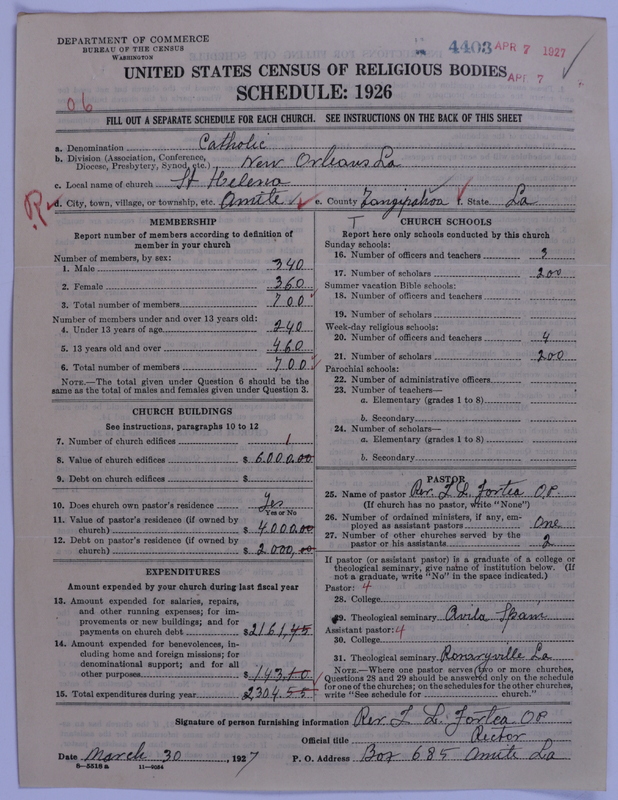 DEPARTMENT OF COMMERCE
BUREAU OF THE CENSUS
WASHINGTON
4403 APR 7 1927
APR 7
UNITED STATES CENSUS OF RELIGIOUS BODIES
SCHEDULE: 1926
06
FILL OUT A SEPARATE SCHEDULE FOR EACH CHURCH. SEE INSTRUCTIONS ON THE BACK OF THIS SHEET
a. Denomination Catholic
b. Division (Association, Conference, Diocese, Presbytery, Synod, etc.) New Orleans La
c. Local name of church St Helena
R
d. City, town, village, or township, etc. Amite e. County Tangipahoa f. State La
T
MEMBERSHIP
Report number of members according to definition of
member in your church
Number of members, by sex:
1. Male 340
2. Female 360
3. Total number of members 700
Number of members under and over 13 years old:
4. Under 13 years of age 240
5. 13 years old and over 460
6. Total number of members 700
NOTE.—The total given under Question 6 should be
same as the total of males and females given under Question 3.
CHURCH BUILDINGS
See instructions, paragraphs 10 to 12
7. Number of church edifices 1
8. Value of church edifices $6000.00
9. Debt on church edifices $
10. Does church own pastor's residence Yes
Yes or No
11. Value of pastor's residence (if owned by
church) $4000.00
12. Debt on pastor's residence (if owned by
church) $2000,00
EXPENDITURES
Amount expended by your church during last fiscal year
13. Amount expended for salaries, repairs,
and other running expenses; for im-
provements or new buildings; and for
payments on church debt $2161,45
14. Amount expended for benevolences, in-
cluding home and foreign missions; for
denominational support; and for all
other purposes $143.10
15. Total expenditures during year 2304.55
CHURCH SCHOOLS
Report here only schools conducted by this church
Sunday schools:
16. Number of officers and teachers 3
17. Number of scholars 200
Summer vacation Bible schools:
18. Number of officers and teachers
19. Number of scholars
Week-day religious schools:
20. Number of officers and teachers 4
21. Number of scholars 200
Parochial schools:
22. Number of administrative officers
23. Number of teachers—
a. Elementary (grades 1 to 8)
b. Secondary
24. Number of scholars—
a. Elementary (grades 1 to 8)
b. Secondary
PASTOR
25. Name of pastor Rev. L. L. Fortea O.P.
(If church has no pastor, write "None")
26. Number of ordained ministers, if any, em-
ployed as assistant pastors One
27. Number of other churches served by the
pastor or his assistants 2
If pastor (or assistant pastor) is a graduate of a college or
theological seminary, give name of institution below. (If
not a graduate, write "No" in the space indicated.)
Pastor: 4
28. College
29. Theological seminary Avila Spain
Assistant pastor: 4
30. College
31. Theological seminary Rosaryville La
NOTE.—Where one pastor serves two or more churches,
Questions 28 and 29 should be answered only on the schedule
for one of the churches; on the schedules for the other churches,
write "See schedule for church."
Signature of person furnishing information Rev. L. L. Fortea O.P.
Official title Rector
Date March 30, 1927 P. O. Address Box 685 Amite La
8—5518a 11—9084